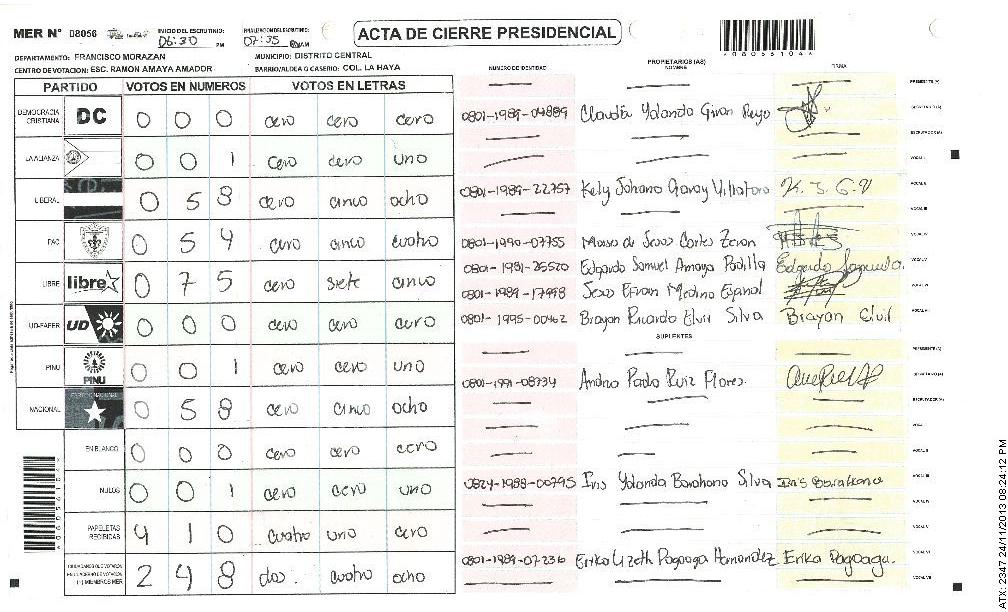 MER N° 08056 INICIO DEL ESCRUTINIO: 06:30 PM FINALIZACION DEL ESCRUTINIO: 07:35 AM ACTA DE CIERRE PRESIDENCIAL
DEPARTAMENTO: FRANCISCO MORAZAN MUNICIPIO: DISTRITO CENTRAL
CENTRO DE VOTACION: ESC. RAMON AMAYA AMADOR BARRIO/ALDEA O CASERIO: COL. LA HAYA
PARTIDO VOTOS EN NUMEROS VOTOS EN LETRAS
DEMOCRACIA CRISTIANA DC 0 0 0 cero cero cero
LA ALIANZA 0 0 1 cero cero uno
LIBERAL 0 5 8 cero cinco ocho
PAC 0 5 4 cero cinco cuatro
LIBRE libre 0 7 5 cero siete cinco
UD-FAPER UD 0 0 0 cero cero cero
PINU PINU 0 0 1 cero cero uno
NACIONAL 0 5 8 cero cinco ocho
EN BLANCO 0 0 0 cero cero cero
NULOS 0 0 1 cero cero uno
PAPELETAS RECIBIDAS 4 1 0 cuatro uno cero
CIUDADANOS QUE VOTARON (+) MIEMBROS MER 2 4 8 dos cuatro ocho
NUMERO DE IDENTIDAD PROPIETARIOS (AS) NOMBRE FIRMA
PRESIDENTE (A)
0801-1989-04889 Claudia Yolanda Giron SECRETARIO (A)
ESCRUTADOR (A)
VOCAL I
0801-1989-22757 Kely Johana Garay Villatoro K. J. G. V VOCAL II
VOCAL III
0801-1990-07755 Cortes VOCAL IV
0801-1981-25520 Edgardo Samuel Amaya Padilla Edgardo VOCAL V
0801-1989-17998 Medino VOCAL VI
0801-1995-00462 Brayan Ricardo Elvir Silva Brayan VOCAL VII
SUPLENTES
PRESIDENTE (A)
0801-1991-08734 Andrea Paola Ruiz Flores SECRETARIO (A)
ESCRUTADOR (A)
VOCAL I
VOCAL II
0824-1988-00795 Iris Yolanda Barahona Silva Iris Barahona VOCAL III
VOCAL IV
VOCAL V
0801-1989-07236 Erika Lizeth Pagoaga Hernandez Erika Pagoaga. VOCAL VI
VOCAL VII
ATX: 2347 24/11/2013 08:24:12 PM